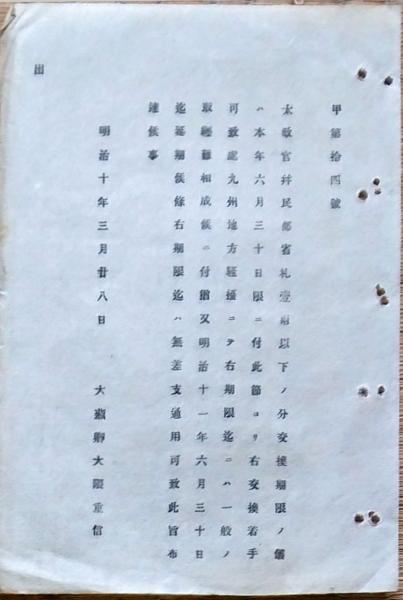 甲第拾四號
太政官幷民部省札壹兩以下ノ分交換期限ノ儀
ハ本年六月三十日限ニ付此節ヨリ右交換着手
可致處九州地方騷擾ニテ右期限迄ニハ一般ノ
取纒難相成候ニ付猶又明治十一年六月三十日
迄延期候條右期限迄ハ無差支通用可致此旨布
達候事
明治十年三月廿八日
大藏卿大隈重信
出